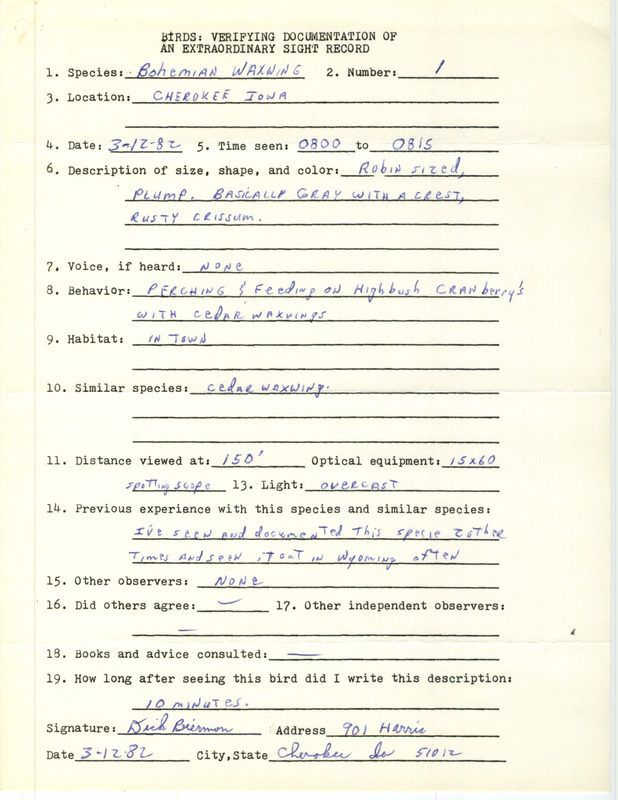 BIRDS: VERIFYING DOCUMENTATION OF
AN EXTRAORDINARY SIGHT RECORD
1. Species: Bohemian Waxwing 2. Number: 1
3. Location: Cherokee Iowa
4. Date: 3-12-82 5. Time seen: 0800 to 0815
6. Description of size, shape, and color: Robin sized,
Plump. Basically Gray with a crest,
Rusty crissum.
7. Voice, if heard: None
8. Behavior: Perching & Feeding on Highbush Cranberry's
with cedar waxwings
9. Habitat: in Town
10. Similar species: Cedar waxwing.
11. Distance viewed at: 150' Optical equipment: 15x60
spotting scope 13. Light: overcast
14. Previous experience with this species and similar species:
I've seen and documented This specie 2 other
Times and seen it out in Wyoming often
15. Other observers: None
16. Did others agree: — 17. Other independent observers:
—
18. Books and advice consulted: —
19. How long after seeing this bird did I write this description:
10 minutes.
Signature: Dick Bierman Address 901 Harris
Date 3-12-82 City,State Cherokee Ia 51012